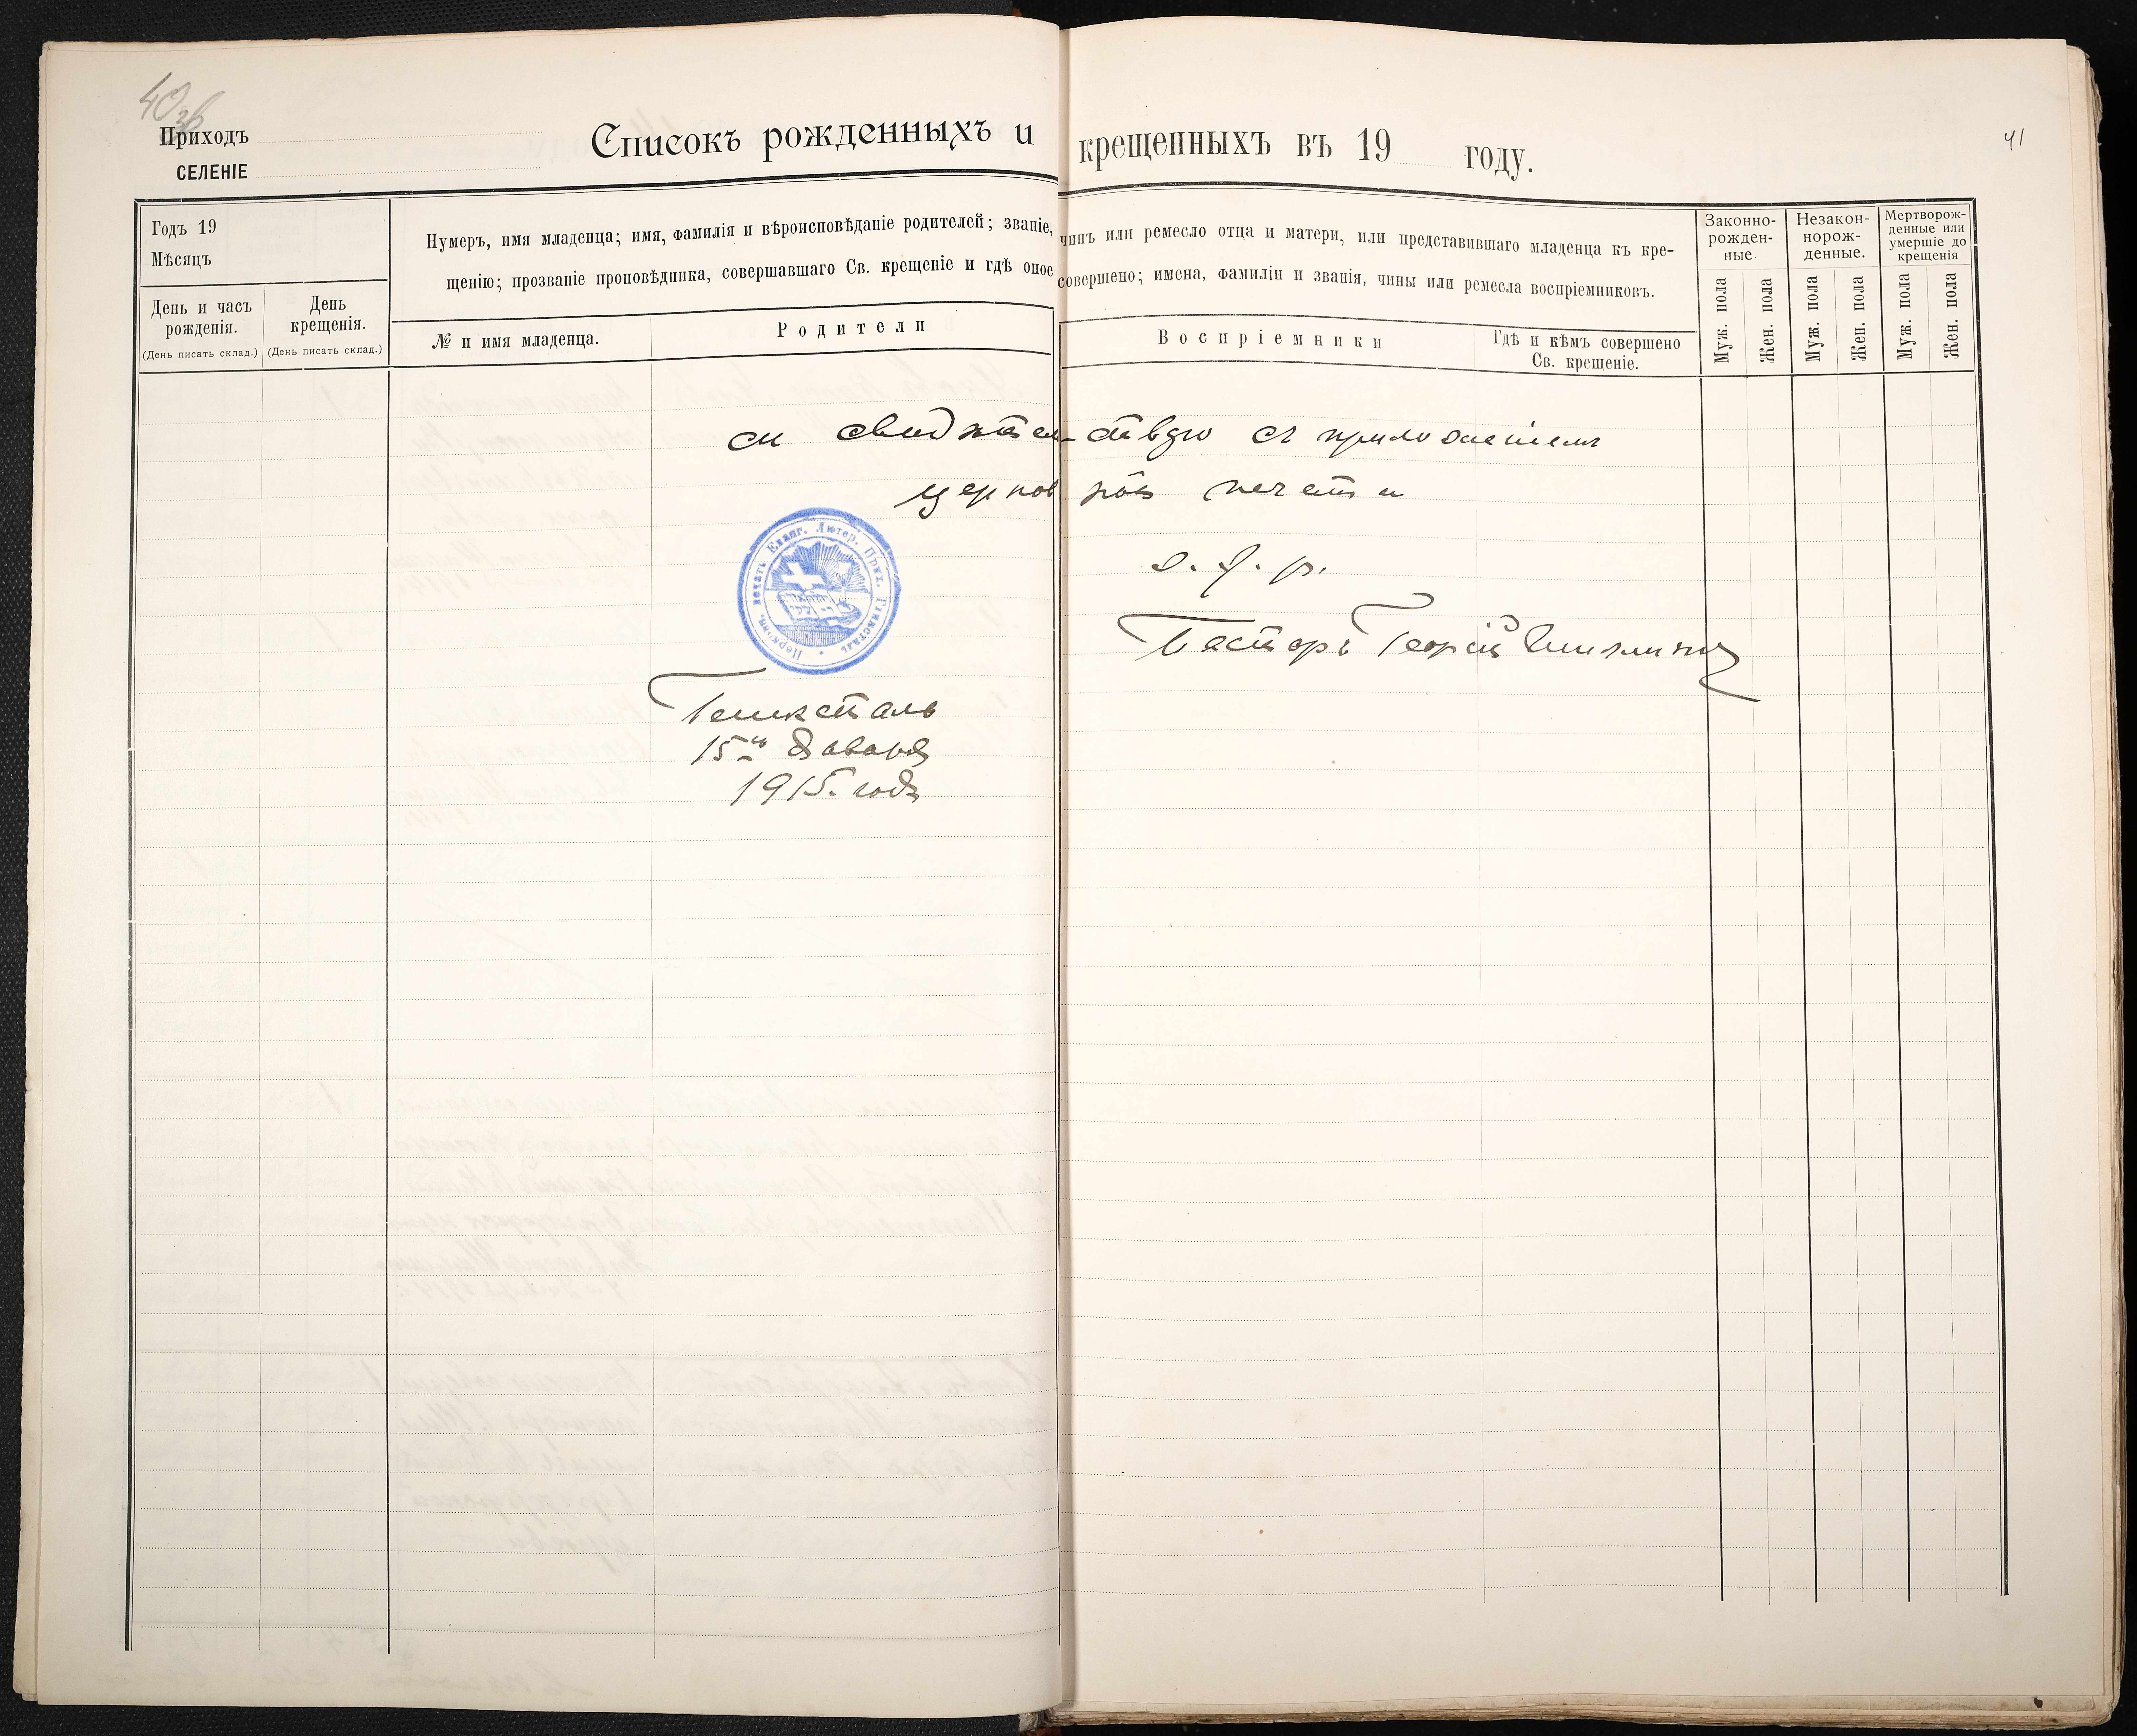 40 зв
41
Приходъ
СЕЛЕНІЕ
Списокъ рожденныхъ и крещенныхъ въ 19 году.
Годъ 19
Мѣсяцъ
День и часъ рожденія.
(День писать склад.)
День крещенія.
(День писать склад.)
Нумеръ, имя младенца; имя, фамилія и вѣроисповѣданіе родителей; званіе, чинъ или ремесло отца и матери, или представившаго младенца къ кре-
щенію; прозваніе проповѣдника, совершавшаго Св. крещеніе и гдѣ оное совершено; имена, фамиліи и званія, чины или ремесла воспріемниковъ.
№ и имя младенца.
Родители
Воспріемники
Гдѣ и кѣмъ совершено
Св. крещеніе.
Законно-
рожден-
ные
Незакон-
норож-
денные.
Мертворож-
денные или
умершіе до
крещенія
Муж. пола
Жен. пола
Муж. пола
Жен. пола
Муж. пола
Жен. пола
свидѣтель-ствую съ приложеніемъ
церковной печати
Церковн. печать Еванг. Лютер. Прих. Глюксталь
Пасторъ Георгій
Глюксталь
15го Января
1915. года